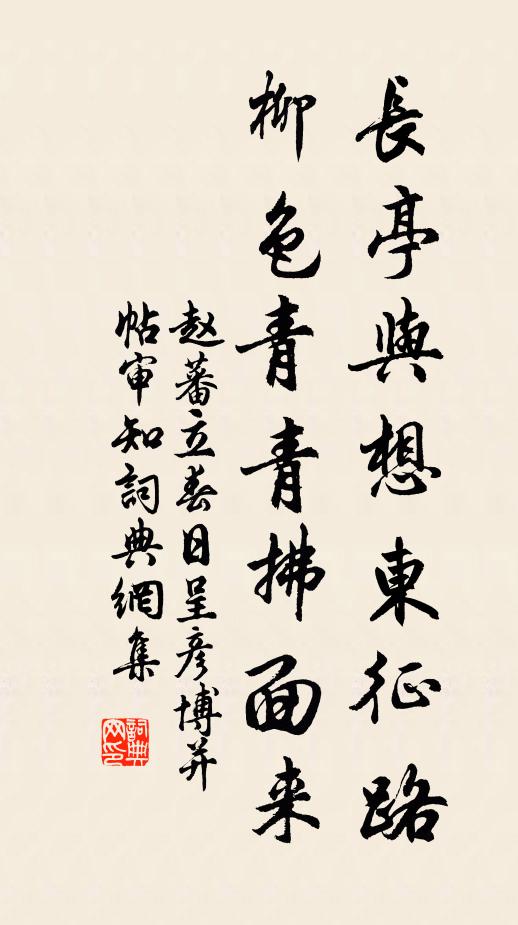 長亭與想東征路
柳色青青拂面来
赵蕃立春日呈彦博并
帖审知詞典網集
詞典
网印